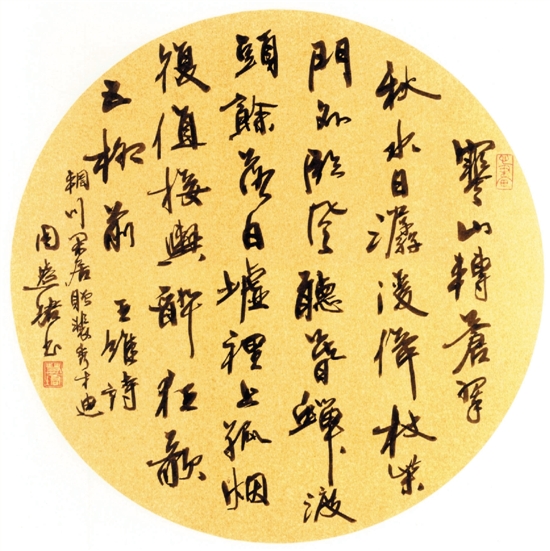 寒山轉蒼翠
秋水日潺湲倚杖柴
門外臨風聽暮蟬渡
頭餘落日墟裡上孤烟
復值接輿醉狂歌
五柳前 王維詩
輞川閑居贈裴秀才迪
周